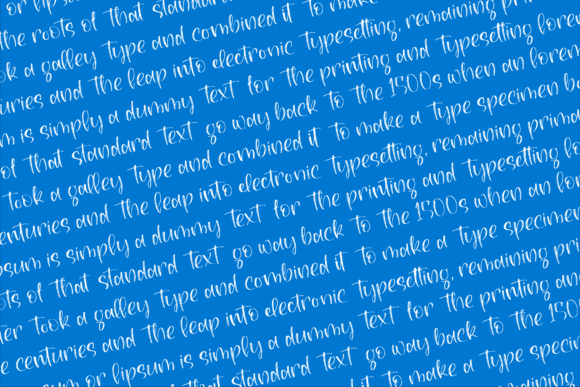 or lipsum
the roots of that standard
ok a galley type and combined it to make
uries and the leap into electronic typesetting, remaining pri
m is simply a dummy text for the printing and typesetting lorem
of that standard text go way back to the 1500s when an lorem
took a galley type and combined it to make a type specimen bo
enturies and the leap into electronic typesetting, remaining prima
psum is simply a dummy text for the printing and typesetting lo
ots of that standard text go way back to the 1500s when an lor
ter took a galley type and combined it to make a type specimen
e centuries and the leap into electronic typesetting, remaining
um or lipsum is simply a dummy text for the printing an
of that standard text go way back to the 150
combined it to make a type